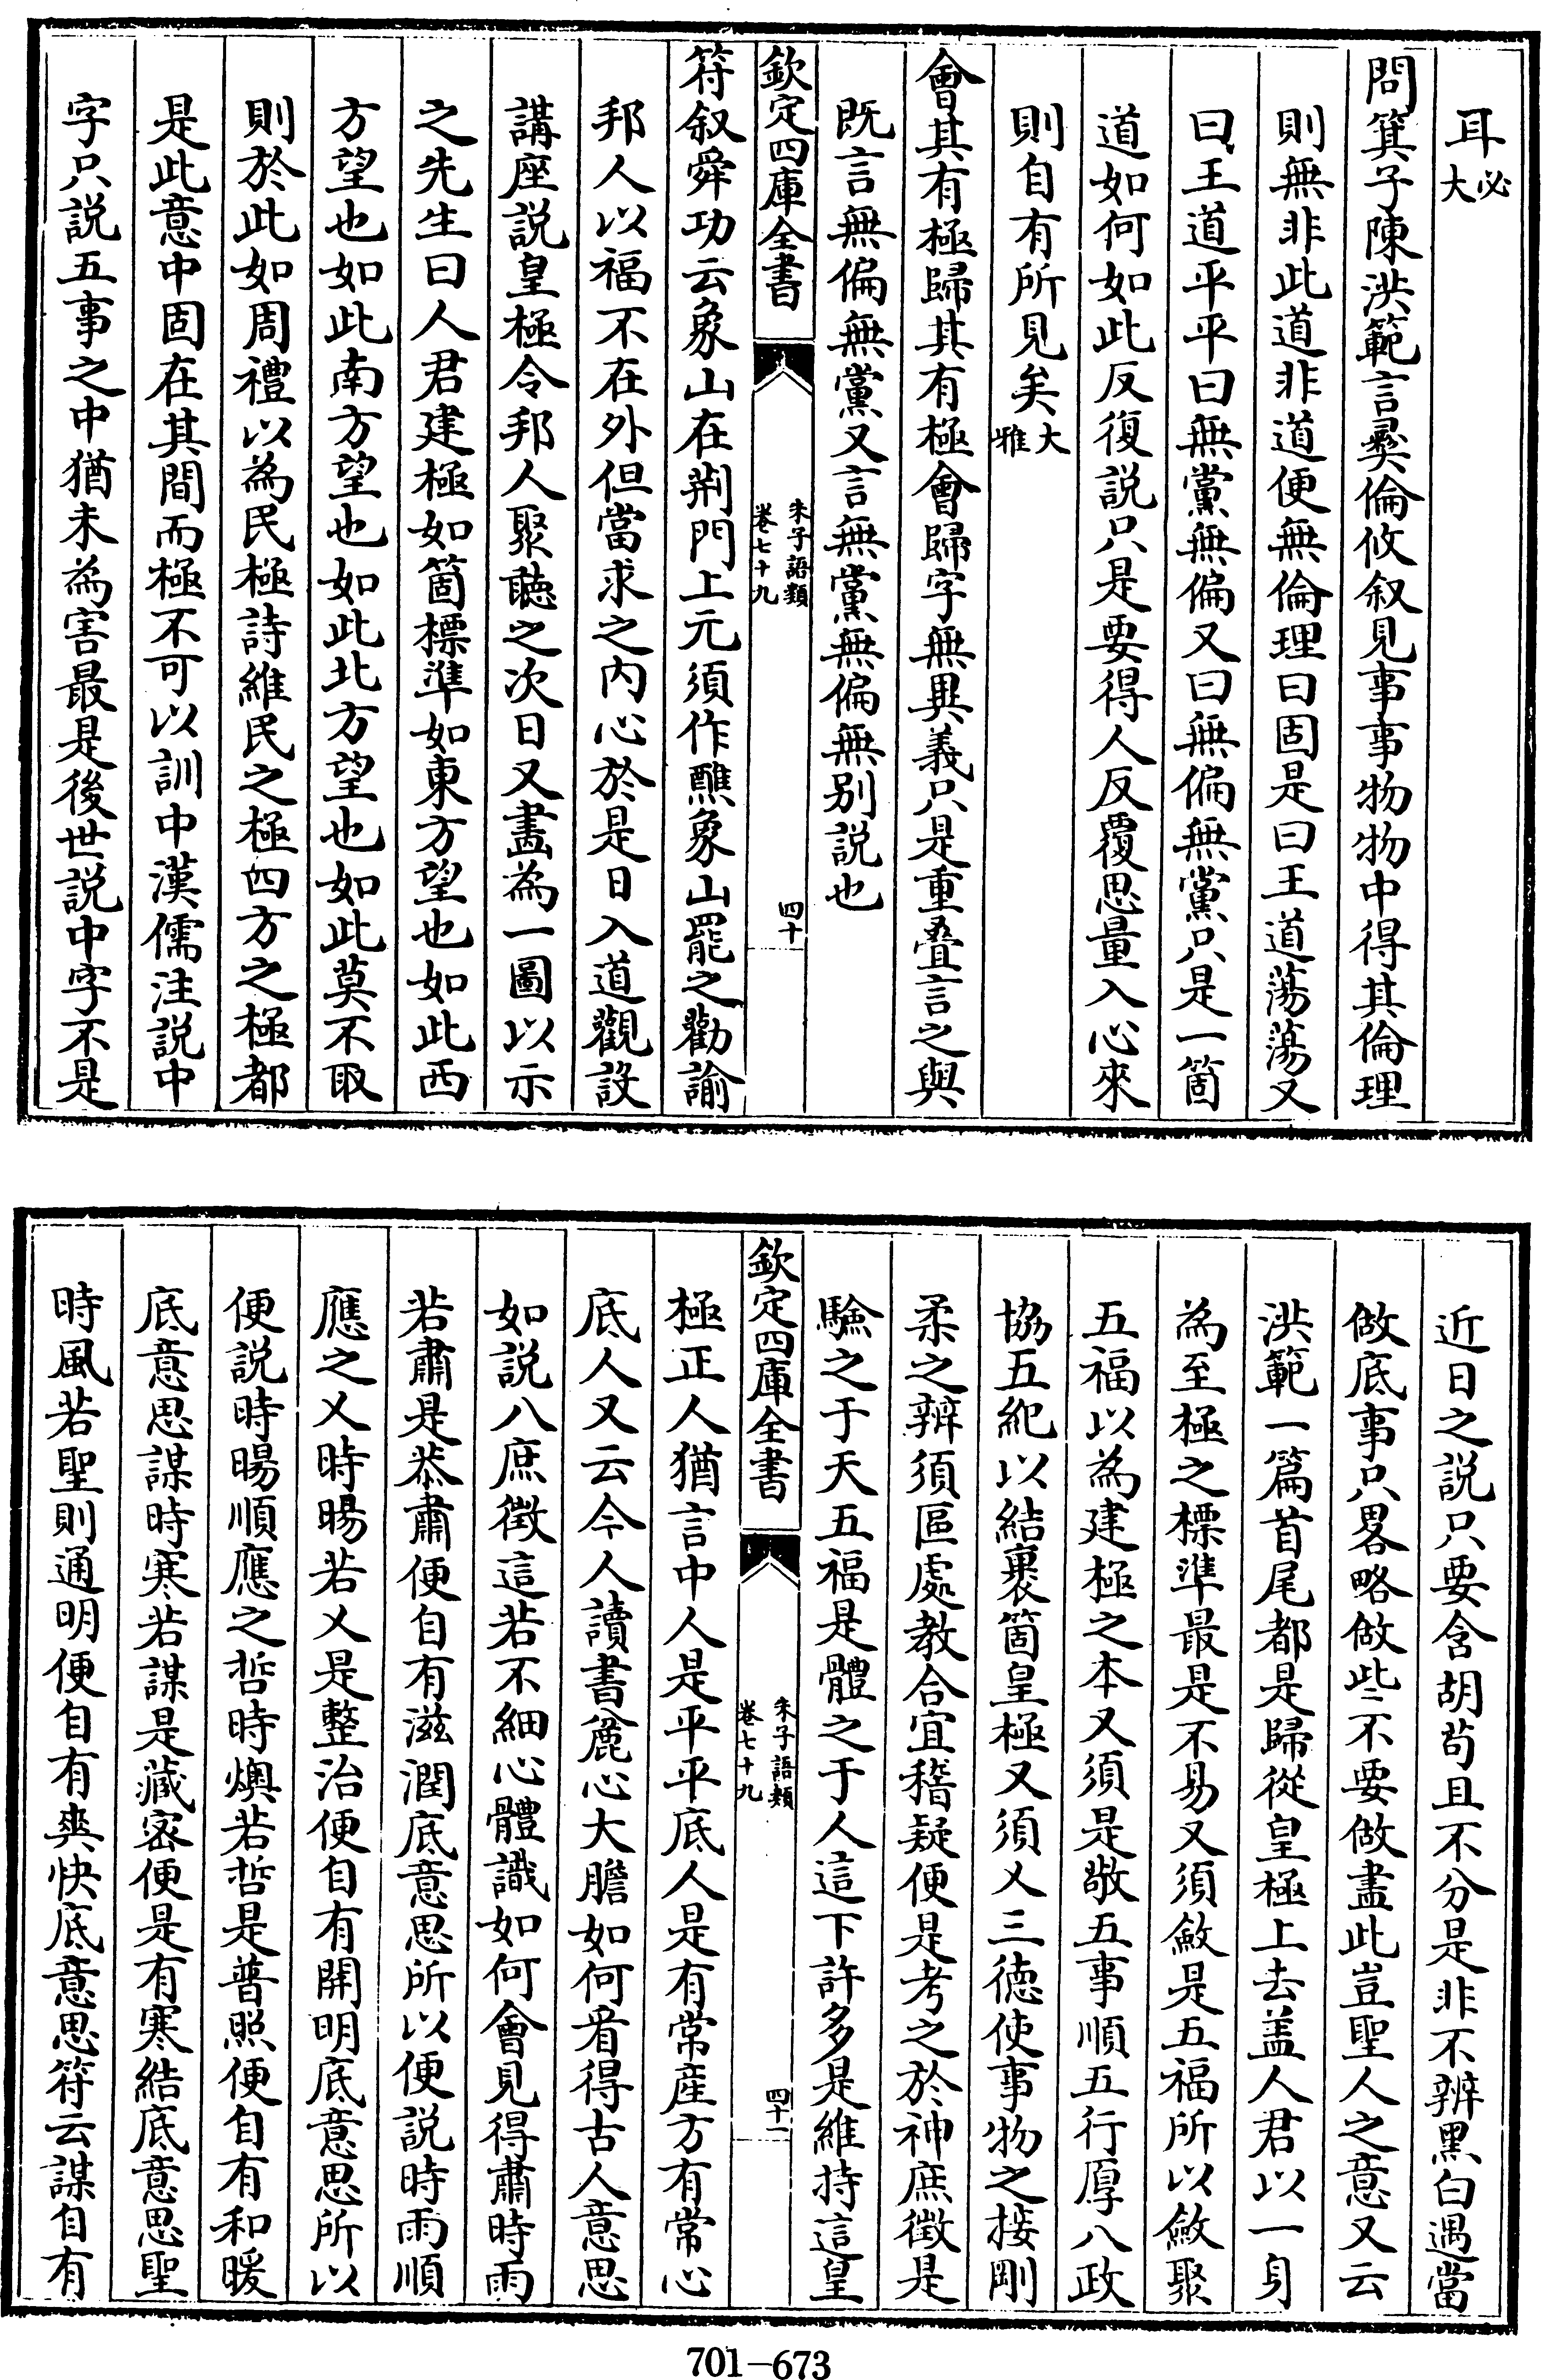 耳必大
問箕子陳洪範言彛倫攸叙見事事物物中得其倫理
則無非此道非道便無倫理曰固是曰王道蕩蕩又
曰王道平平曰無黨無偏又曰無偏無黨只是一箇
道如何如此反復説只是要得人反覆思量入心來
則自有所見矣大雅
會其有極歸其有極會歸字無異義只是重疊言之與
既言無偏無黨又言無黨無偏無别説也
欽定四庫全書
朱子語類
卷七十九
四十
符叙舜功云象山在荆門上元須作醮象山罷之勸諭
邦人以福不在外但當求之内心於是日入道觀設
講座説皇極令邦人聚聽之次日又畫為一圖以示
之先生曰人君建極如箇標準如東方望也如此西
方望也如此南方望也如此北方望也如此莫不取
則於此如周禮以為民極詩維民之極四方之極都
是此意中固在其間而極不可以訓中漢儒注説中
字只説五事之中猶未為害最是後世説中字不是
近日之説只要含胡苟且不分是非不辨黑白遇當
做底事只畧略做些不要做盡此豈聖人之意又云
洪範一篇首尾都是歸從皇極上去盖人君以一身
為至極之標準最是不易又須斂是五福所以斂聚
五福以為建極之本又須是敬五事順五行厚八政
協五紀以結裹箇皇極又須乂三德使事物之接剛
柔之辨須區處教合宜稽疑便是考之於神庶徵是
驗之于天五福是體之于人這下許多是維持這皇
欽定四庫全書
朱子語類
卷七十九
四十一
極正人猶言中人是平平底人是有常産方有常心
底人又云今人讀書麄心大膽如何看得古人意思
如説八庶徵這若不細心體識如何會見得肅時雨
若肅是恭肅便自有滋潤底意思所以便説時雨順
應之乂時暘若乂是整治便自有開明底意思所以
便説時暘順應之哲時燠若哲是普照便自有和暖
底意思謀時寒若謀是藏密便是有寒結底意思聖
時風若聖則通明便自有爽快底意思符云謀自有
701-673